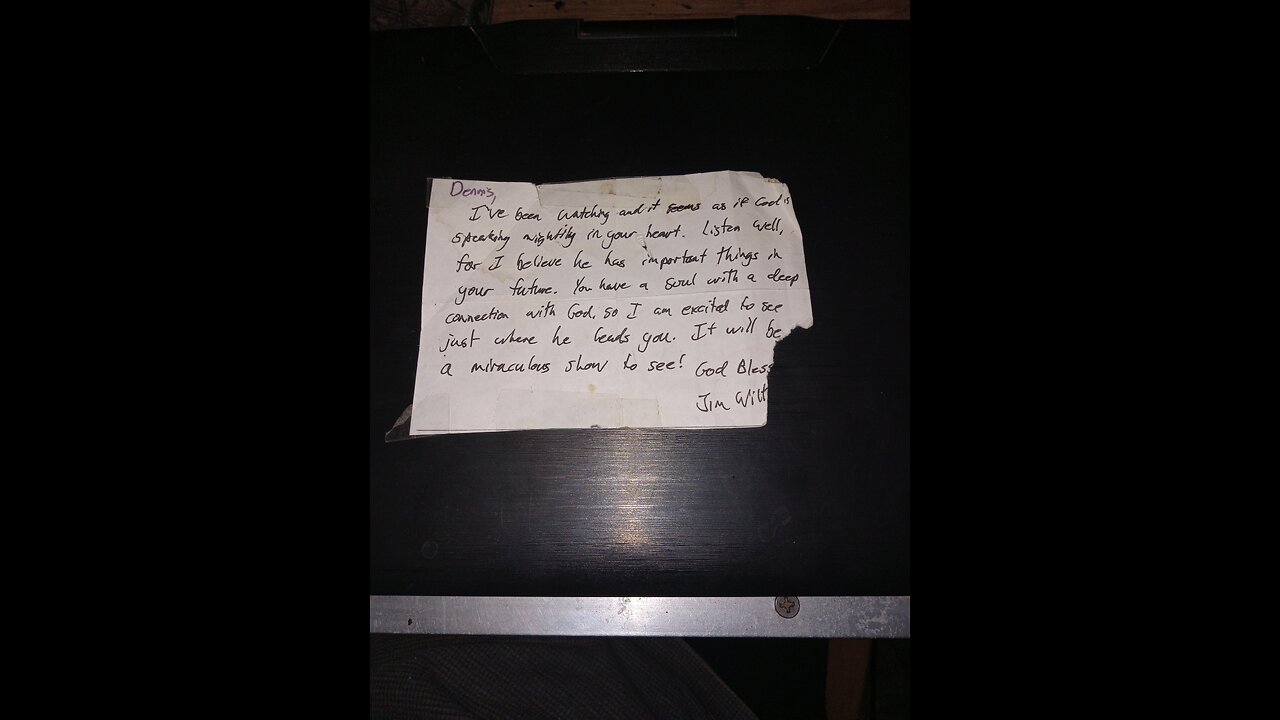 Dennis,
I've been watching and it seems as if God is
speaking mightily in your heart. Listen well,
for I believe he has important things in
your future. You have a soul with a deep
connection with God, so I am excited to see
just where he leads you. It will be
a miraculous show to see! God Bless
Jim Wilt